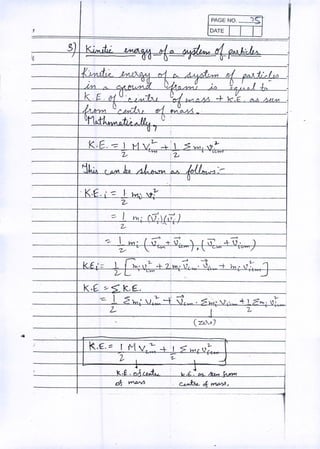 PAGE NO. 75
DATE
8) Kinetic energy of a system of particles
Kinetic energy of a system of particles
in a ground frame is equal to
K.E. of centre of mass + K.E. as seen
from centre of mass.
Mathematically,
K.E. = 1/2 M V²cm + 1/2 Σ mi v²icm
This can be shown as follows:-
K.E.i = 1/2 mi vi²
= 1/2 mi (v⃗i)(v⃗i)
= 1/2 mi (v⃗cm + v⃗icm).(v⃗cm + v⃗icm)
KEi = 1/2 [mi v²cm + 2 mi v⃗cm . v⃗icm + mi v²icm]
K.E = Σ K.E.
= 1/2 Σmi Vcm² + v⃗cm . Σmi v⃗icm + 1/2 Σmi v²icm
(zero)
K.E. = 1/2 M Vcm² + 1/2 Σ mi v²icm
K.E. of centre of mass
K.E. as seen from centre of mass.